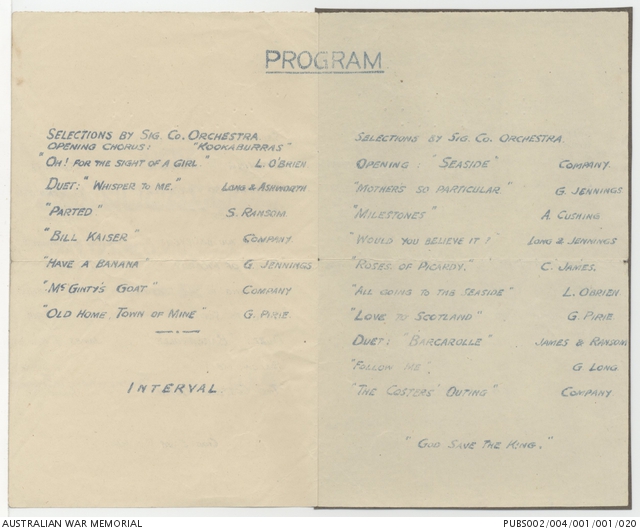 PROGRAM
SELECTIONS BY SIG. CO. ORCHESTRA.
OPENING CHORUS: "KOOKABURRAS"
"OH! FOR THE SIGHT OF A GIRL." L. O'BRIEN
DUET: "WHISPER TO ME." LONG & ASHWORTH
"PARTED" S. RANSOM.
"BILL KAISER" COMPANY
"HAVE A BANANA" G. JENNINGS
"McGINTY'S GOAT" COMPANY
"OLD HOME TOWN OF MINE" G. PIRIE.
INTERVAL.
SELECTIONS BY SIG. CO. ORCHESTRA.
OPENING: "SEASIDE" COMPANY.
"MOTHER'S SO PARTICULAR" G. JENNINGS
"MILESTONES" A. CUSHING
"WOULD YOU BELIEVE IT!" LONG & JENNINGS
"ROSES OF PICARDY." C. JAMES.
"ALL GOING TO THE SEASIDE" L. O'BRIEN.
"LOVE TO SCOTLAND" G. PIRIE.
DUET: "BARCAROLLE" JAMES & RANSOM
"FOLLOW ME" G. LONG
"THE COSTERS' OUTING" COMPANY.
"GOD SAVE THE KING."
AUSTRALIAN WAR MEMORIAL PUBS002/004/001/001/020